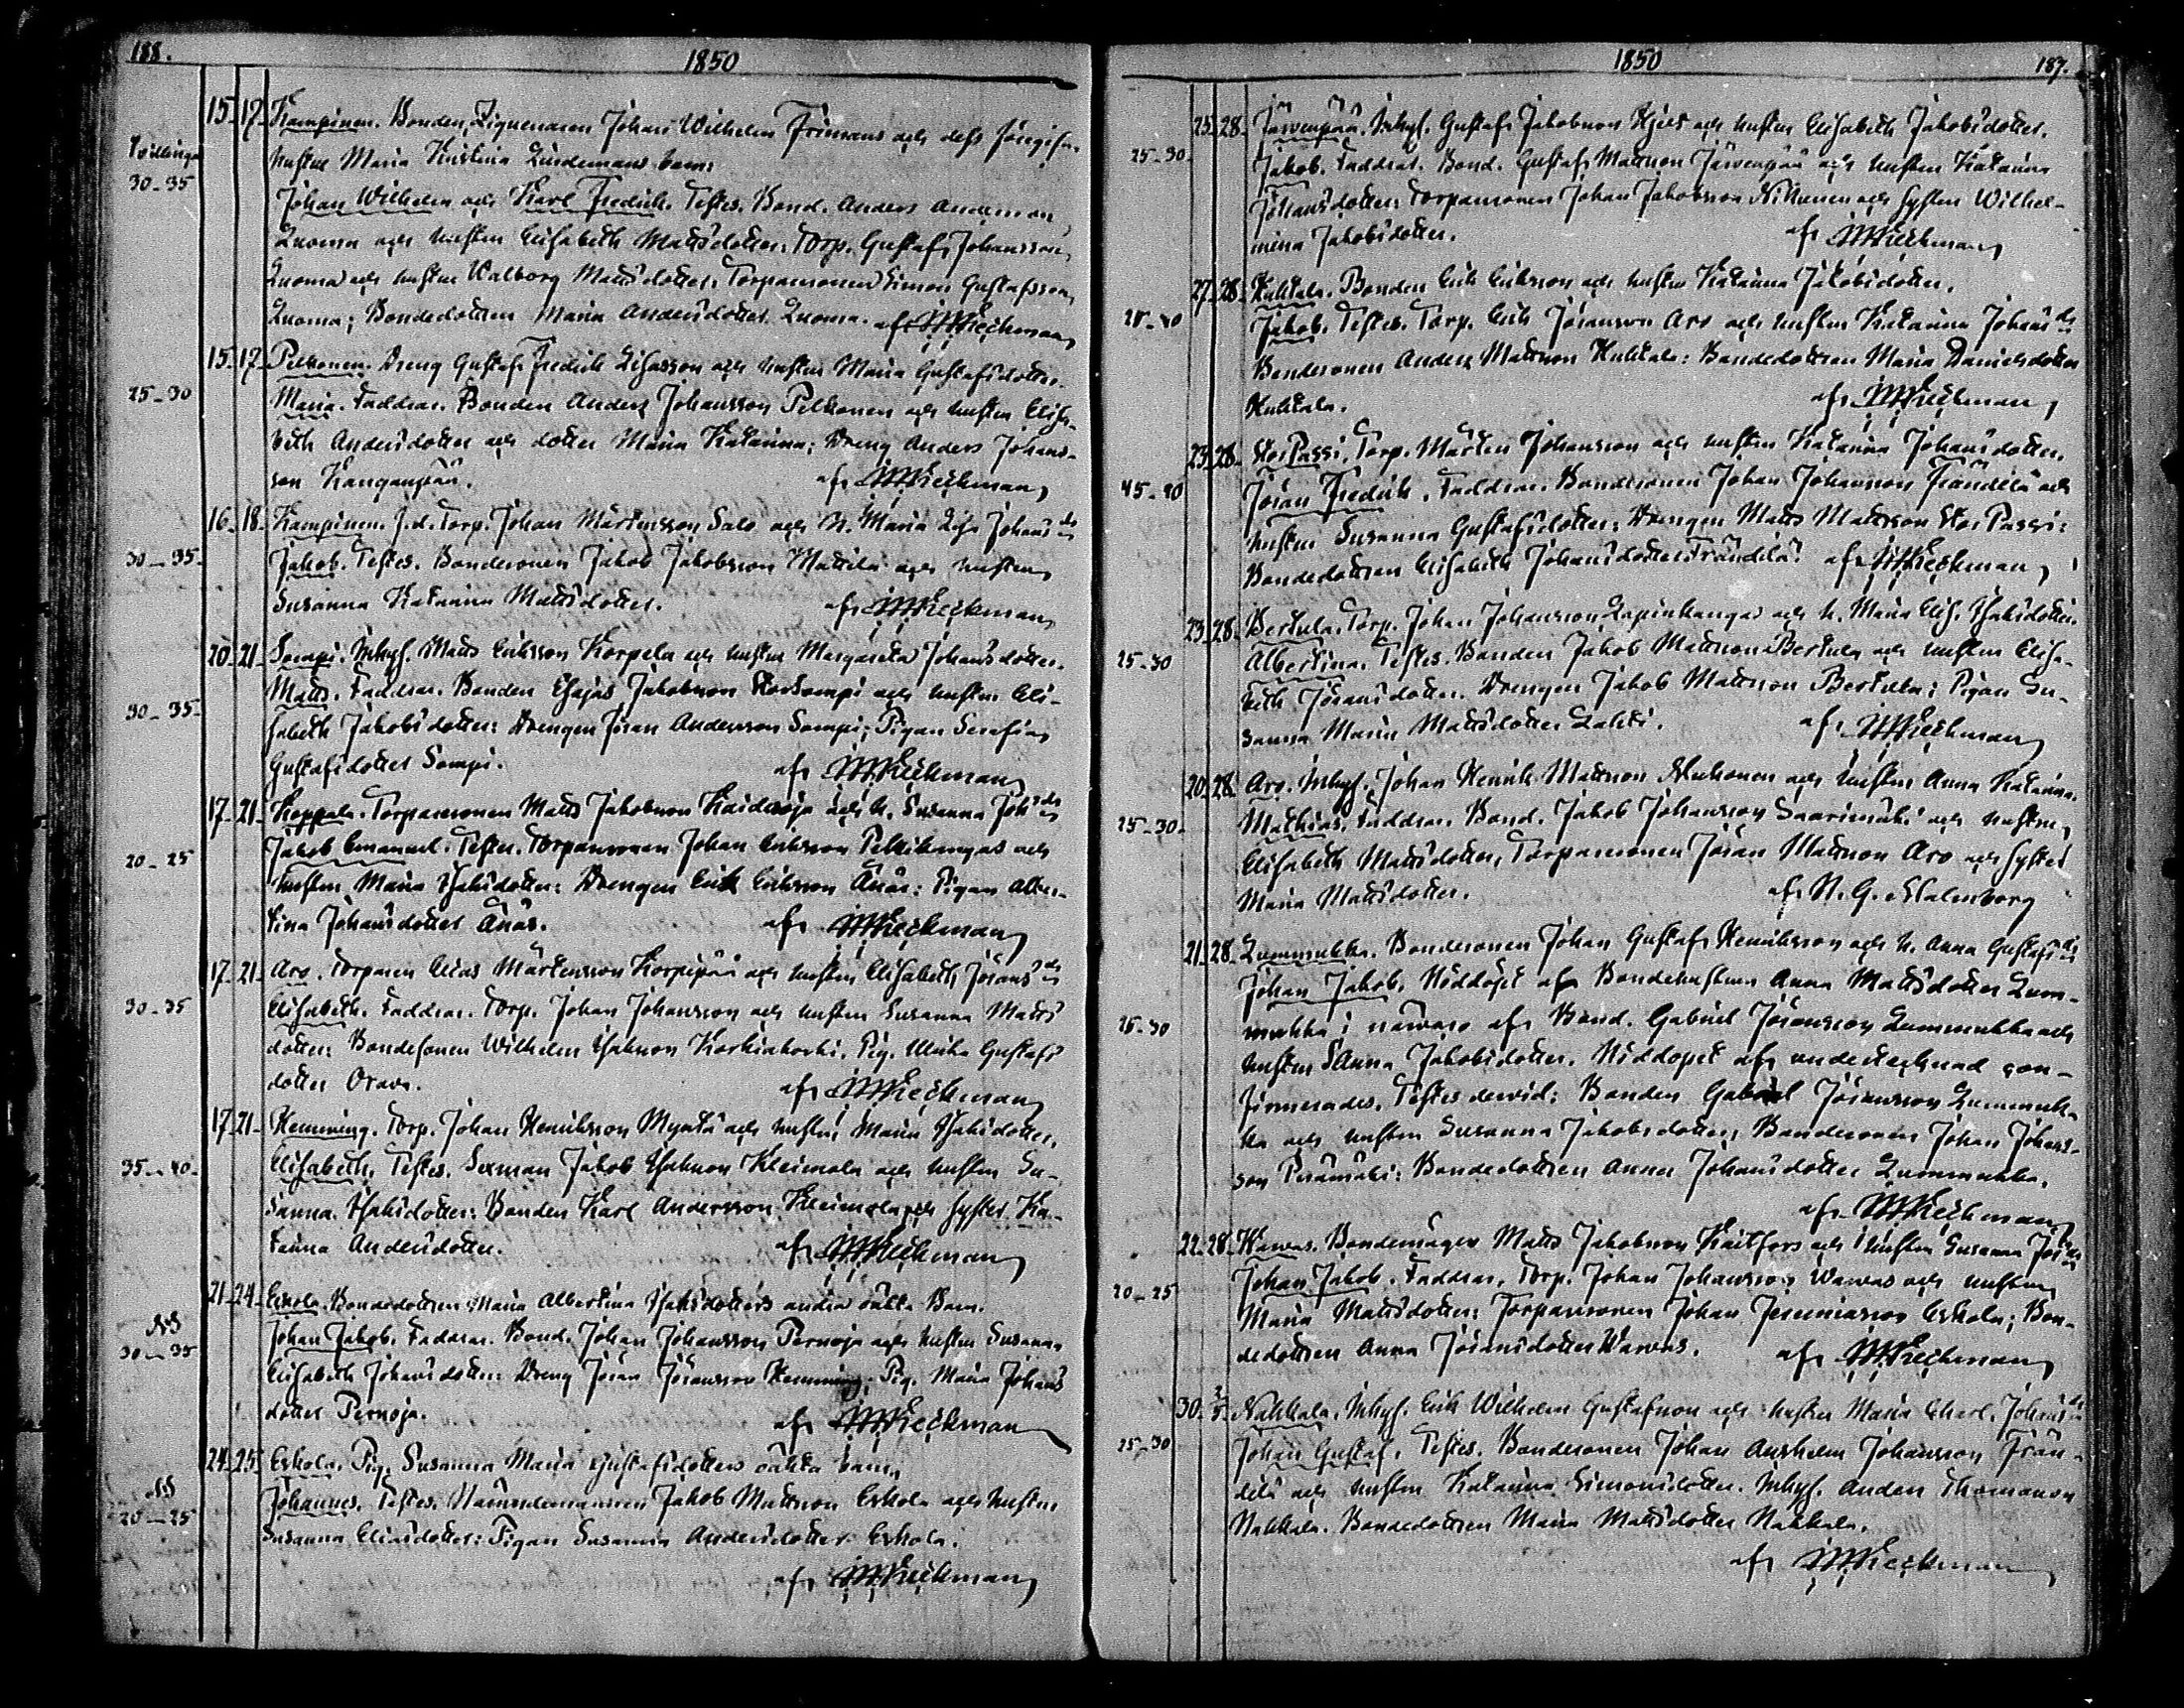 188.
1850
15. 17. Kampinen. Bonden, Ziguenaren Johan Wilhelm Frimans och dess förrgifn.
Tvillingar hustru Maria Kristina Lindemans barn:
30-35
Johan Wilhelm och Karl Fredrik. Testes. Bond. Anders Andersson
Luoma och hustru Elisabeth Mattsdotter: Torp. Gustaf Johansson
Luoma och hustru Walborg Mattsdotter: Torparsonen Simon Gustafsson
Luoma; Bondedottren Maria Andersdotter Luoma. af Keckman
15. 17. Pelkonen. Dreng Gustaf Fredrik Eliasson och hustru Maria Gustafsdotter.
25-30 Maria. Faddrar. Bonden Anders Johansson Pelkonen och hustru Elisa-
beth Andersdotter och dotter Maria Katarina; Dreng Anders Johans-
son Kanganpää. af Keckman
16. 18. Kampinen. Torp. Johan Mårtensson Salo och h. Maria Lisa Johans ds
30-35. Jakob. Testes. Bondesonen Jakob Jakobsson Mattila och hustru
Susanna Katarina Mattsdotter. af Keckman
20. 21. Sompi. Inhys. Matts Eriksson Korpela och hustru Margareta Johansdotter.
Matts. Faddrar. Bonden Esajas Jakobsson Storsompi och hustru Eli-
30-35. sabeth Jakobsdotter: Drengen Jöran Andersson Sompi; Pigan Serafia
Gustafsdotter Sompi. af Keckman
17. 21. Koppala. Torparesonen Matts Jakobsson Kaidesoja och h. Susanna Joh ds
Jakob Emanuel. Testes. Torparsonen Johan Eriksson Pelkikangas och
20-25 hustru Maria Isaksdotter: Drengen Erik Eriksson Änäs: Pigan Alber-
tina Johansdotter Änäs. af Keckman
17. 21. Aro. Torparen Elias Mårtensson Korpipää och hustru Elisabeth Jörans ds
30-35 Elisabeth. Faddrar. Torp. Johan Johansson och hustru Susanna Matts
dotter: Bondesonen Wilhelm Isaksson Korkiakoski. Pig. Ulrika Gustafs
dotter Orava. af Keckman
17. 21. Hemming. Torp. Johan Henriksson Myntä och hustru Maria Isaksdotter.
35-40. Elisabeth. Testes. Sexman Jakob Isaksson Kleimola och hustru Su-
sanna Isaksdotter: Bonden Karl Andersson Kleimola och syster Ka-
tarina Andersdotter. af Keckman
21. 24. Eskola. Bondedottren Maria Albertina Isaksdotters andra oäkta Barn.
30-35 Johan Jakob. Faddrar. Bond. Johan Johansson Pernoja och hustru Susanna
Elisabeth Johansdotter: Dreng Jöran Jöransson Hemming; Pig. Maria Johans
dotter Pernoja. af Keckman
24. 25. Eskola. Pig. Susanna Maria Gustafsdotters oäkta barn,
20-25 Johannes. Testes. Nämndemannen Jakob Mattsson Eskola och hustru
Susanna Eliasdotter: Pigan Susanna Andersdotter Eskola.
af Keckman
1850
187.
25. 28. Järvenpää. Inhys. Gustaf Jakobsson Kjelt och hustru Elisabeth Jakobsdotter.
25-30. Jakob. Faddrar. Bond. Gustaf Mattsson Järvenpää och hustru Katarina
Johansdotter: Torparsonen Johan Jakobsson Niskanen och syster Wilhel-
mina Jakobsdotter. af Keckman
27. 28. Huhtala. Bonden Erik Eriksson och hustru Katarina Jakobsdotter.
Jakob. Testes. Torp. Erik Jöransson Aro och hustru Katarina Johans ds
Bondesonen Anders Mattsson Huhtala: Bondedottren Maria Danielsdotter
Huhtala. af Keckman
23. 28. Stor Passi. Torp. Mårten Johansson och hustru Katarina Johansdotter.
Jöran Fredrik. Faddrar. Bondesonen Johan Johansson Frändilä och
hustru Susanna Gustafsdotter: Drengen Matts Mattsson Stor Passi:
Bondedottren Elisabeth Johansdotter Frändilä. af Keckman
23. 28. Bertula. Torp. Johan Johansson Lapinkangas och h. Maria Elis. Isaksdotter.
25-30 Albertina. Testes. Bonden Jakob Mattsson Bertula och hustru Elisa-
beth Jöransdotter. Drengen Jakob Mattsson Bertula; Pigan Su-
sanna Maria Mattsdotter Lahti. af Keckman
20. 28. Aro. Inhys. Johan Henrik Mattsson Muhonen och hustru Anna Katarina.
25-30. Mathias. Faddrar. Bond. Jakob Johansson Saarimäki och hustru
Elisabeth Mattsdotter, Torparesonen Jöran Mattsson Aro och syster
Maria Mattsdotter. af N. G. Stalenborg
21. 28. Lummukka. Bondesonen Johan Gustaf Henriksson och h. Anna Gustafs ds
Johan Jakob. Nöddöpt af Bondehustrun Anna Mattsdotter Lum-
25-30 mukka i närvaro af Bond. Gabriel Jöransson Lummukka och
hustru Sanna Jakobsdotter. Nöddopet af undertecknad con-
firmerades. Testes dervid: Bonden Gabriel Jöransson Lummuk-
ka och hustru Susanna Jakobsdotter, Bondesonen Johan Johans-
son Perämäki: Bondedottren Anna Johansdotter Lummukka.
af Keckman
22. 28. Warvas. Bondemågen Matts Jakobsson Kaitfors och hustru Susanna Jör ds
20-25 Johan Jakob. Faddrar. Torp. Johan Johansson Warvas och hustru
Maria Mattsdotter: Torparesonen Johan Jeremiasson Eskola; Bon-
dedottren Anna Jöransdotter Warvas. af Keckman
30. 3/5 Nahkala. Inhys. Erik Wilhelm Gustafsson och hustru Maria Charl. Johans ds
25-30 Johan Gustaf. Testes. Bondesonen Johan Anshelm Johansson Frän-
dilä och hustru Katarina Simonsdotter. Inhys. Anders Thomasson
Nahkala. Bondedottren Maria Mattsdotter Nahkala.
af Keckman